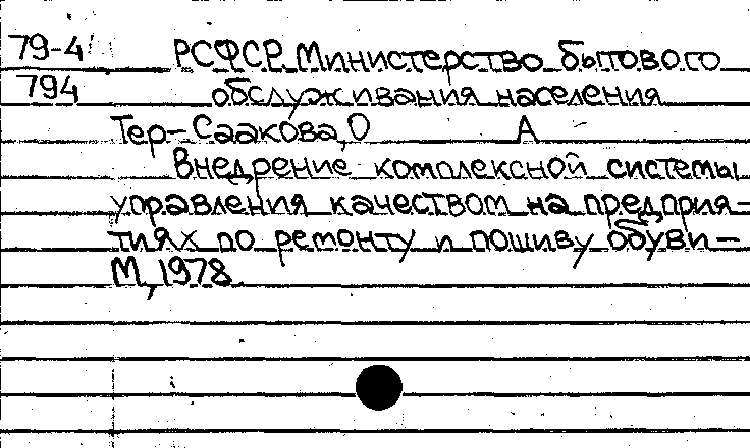 79-4 РСФСР. Министерство бытового
794 обслуживания населения
Тер-Саакова, О А
Внедрение комплексной системы
управления качеством на предприя-
тиях по ремонту и пошиву обуви -
М, 1978.